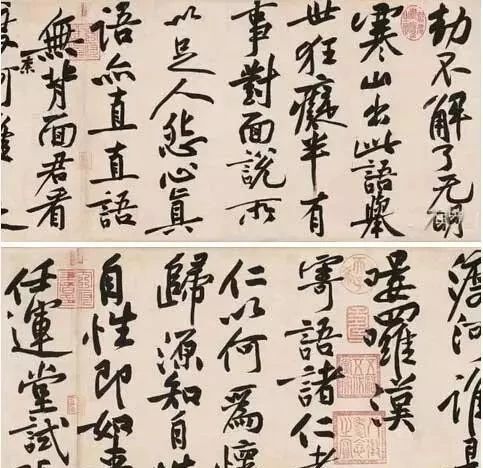 劫不解了无明
寒山出此語舉
世狂癡半有
事對面說所
以足人怨心真
語亦直直語
無背面君看
奈
河誰
嘍羅漢
寄語諸仁者
仁以何爲懷
歸源知自性
自性即如來
任運堂試